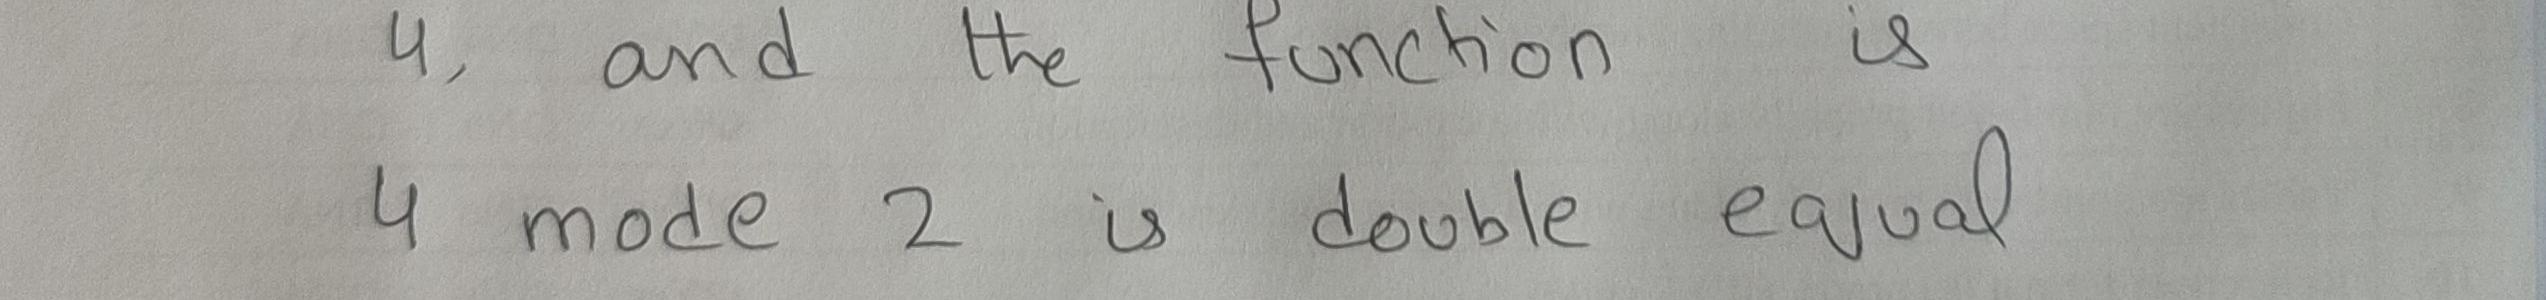 4, and the function is
4 mode 2 is double eqjual